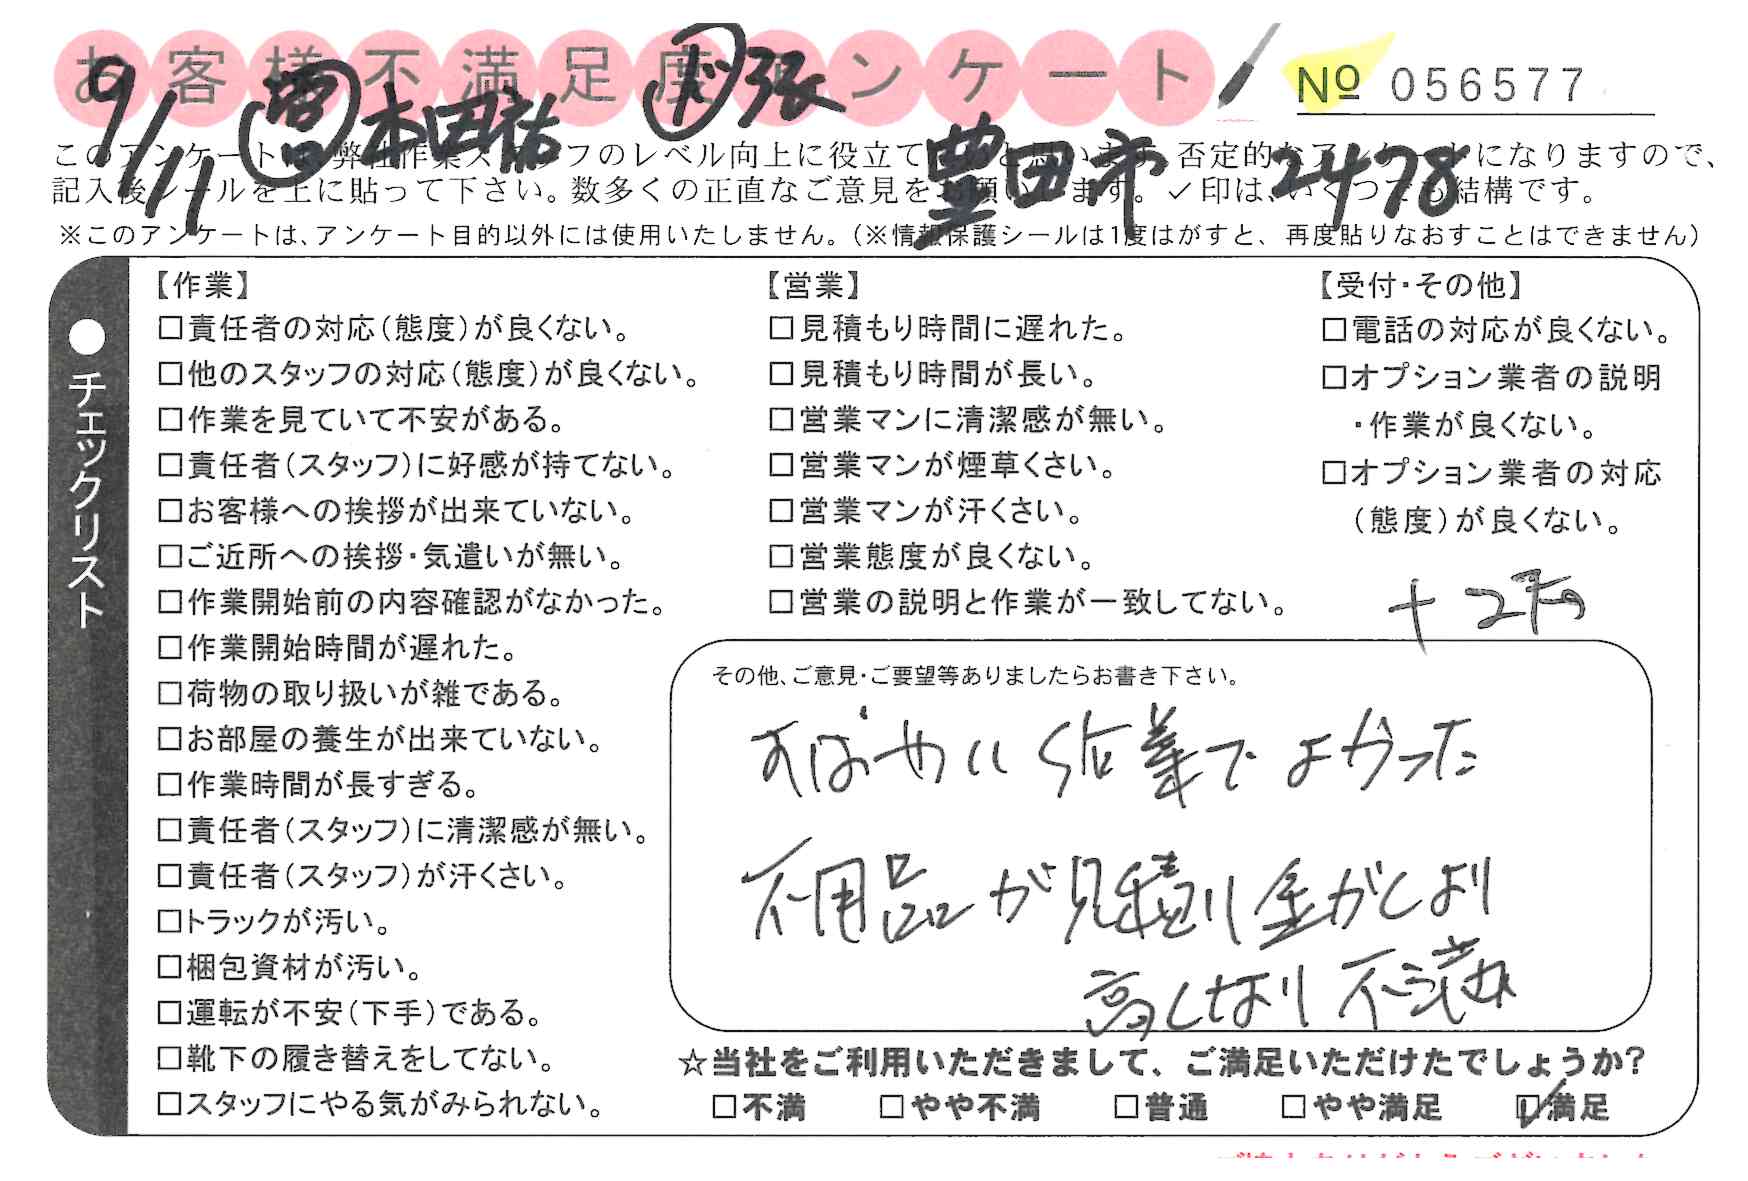 お客様不満足度アンケート
No 056577
9/11 営 本田祐 ド 張
豊田市 2478
このアンケートは、弊社作業スタッフのレベル向上に役立てたいと思います。否定的なアンケートになりますので、
記入後シールを上に貼って下さい。数多くの正直なご意見をお願いします。✓印は、いくつでも結構です。
※このアンケートは、アンケート目的以外には使用いたしません。(※情報保護シールは1度はがすと、再度貼りなおすことはできません)
●チェックリスト
【作業】
□責任者の対応(態度)が良くない。
□他のスタッフの対応(態度)が良くない。
□作業を見ていて不安がある。
□責任者(スタッフ)に好感が持てない。
□お客様への挨拶が出来ていない。
□ご近所への挨拶・気遣いが無い。
□作業開始前の内容確認がなかった。
□作業開始時間が遅れた。
□荷物の取り扱いが雑である。
□お部屋の養生が出来ていない。
□作業時間が長すぎる。
□責任者(スタッフ)に清潔感が無い。
□責任者(スタッフ)が汗くさい。
□トラックが汚い。
□梱包資材が汚い。
□運転が不安(下手)である。
□靴下の履き替えをしてない。
□スタッフにやる気がみられない。
【営業】
□見積もり時間に遅れた。
□見積もり時間が長い。
□営業マンに清潔感が無い。
□営業マンが煙草くさい。
□営業マンが汗くさい。
□営業態度が良くない。
□営業の説明と作業が一致してない。
【受付・その他】
□電話の対応が良くない。
□オプション業者の説明
・作業が良くない。
□オプション業者の対応
(態度)が良くない。
その他、ご意見・ご要望等ありましたらお書き下さい。
すばやい作業でよかった
不用品が見積り金がくより
高くなり不満
☆当社をご利用いただきまして、ご満足いただけたでしょうか?
□不満 □やや不満 □普通 □やや満足 ☑満足